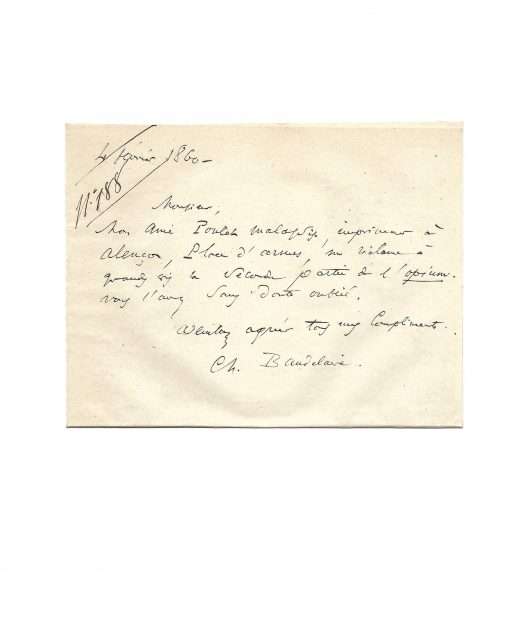 4 février 1860 -
11° 188
Monsieur,
Mon ami Poulet Malassis, imprimeur à
Alençon, Place d'armes, me réclame à
grands cris la Seconde partie de l'opium.
vous l'avez sans doute oublié.
Veuillez agréer tous mes Compliments.
Ch. Baudelaire.